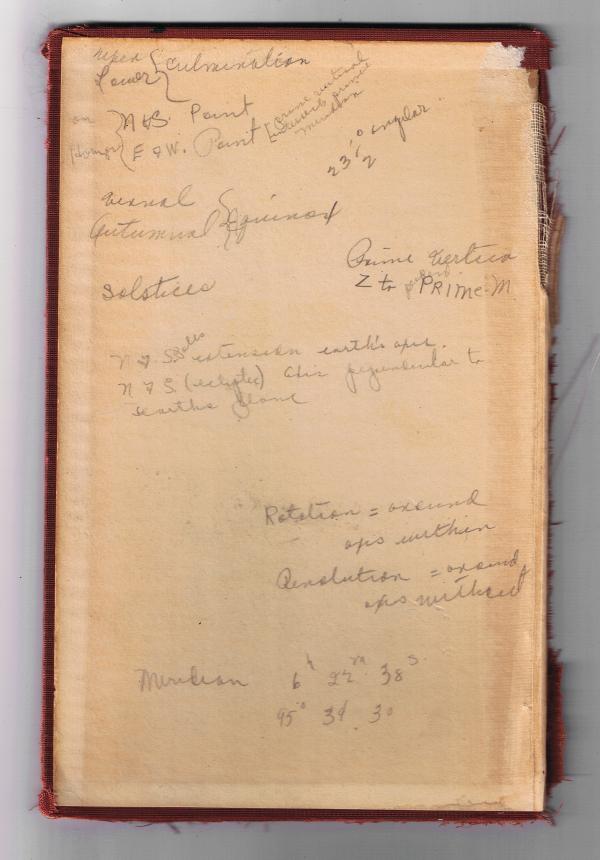 Upper
Lower { Culmination
on N & S. Point
Horizon { E & W. Point [prime vertical
prime
meridian
23 1/2° angular.
Vernal
Autumnal } Equinox
Prime Vertica
Z to PRIME-M
Solstices
N & S. Poles extension earth's axis.
N & S. (ecliptic) axis perpendicular to
earths plane
Rotation = around
axis within
Revolution = around
axis without
Meridian 6h 22m 38s.
95° 39 30